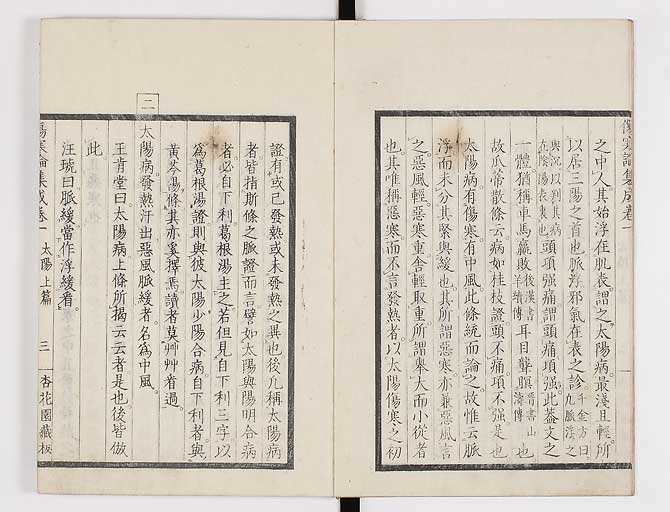 傷寒論集成卷一
之中人其始浮在肌表謂之太陽病最淺且輕所
以居三陽之首也脈浮邪氣在表之診千金方曰凡脈浮之
與沉以判其病在陰陽表裏也頭項強痛謂頭痛項強此蓋文之
一體猶稱車馬羸敗後漢書羊續傳耳目聾瞑晉書山濤傳也
故瓜蒂散條云病如桂枝證頭不痛項不強是也
太陽病有傷寒有中風此條統而論之故惟云脈
浮而未分其緊與緩也其所謂惡寒亦兼惡風言
之惡風輕惡寒重舍輕取重所謂舉大而小從者
也其唯稱惡寒而不言發熱者以太陽傷寒之初
證有或已發熱或未發熱之異也後凡稱太陽病
者皆指斯條之脈證而言譬如太陽與陽明合病
者必自下利葛根湯主之若但見自下利三字以
爲葛根湯證則與彼太陽少陽合病自下利者與
黃芩湯條其亦奚擇焉讀者莫艸艸看過
二
太陽病發熱汗出惡風脈緩者名爲中風
王肯堂曰太陽病上條所揭云云者是也後皆倣
此
汪琥曰脈緩當作浮緩看
傷寒論集成卷一 太陽上篇 三 杏花園藏板